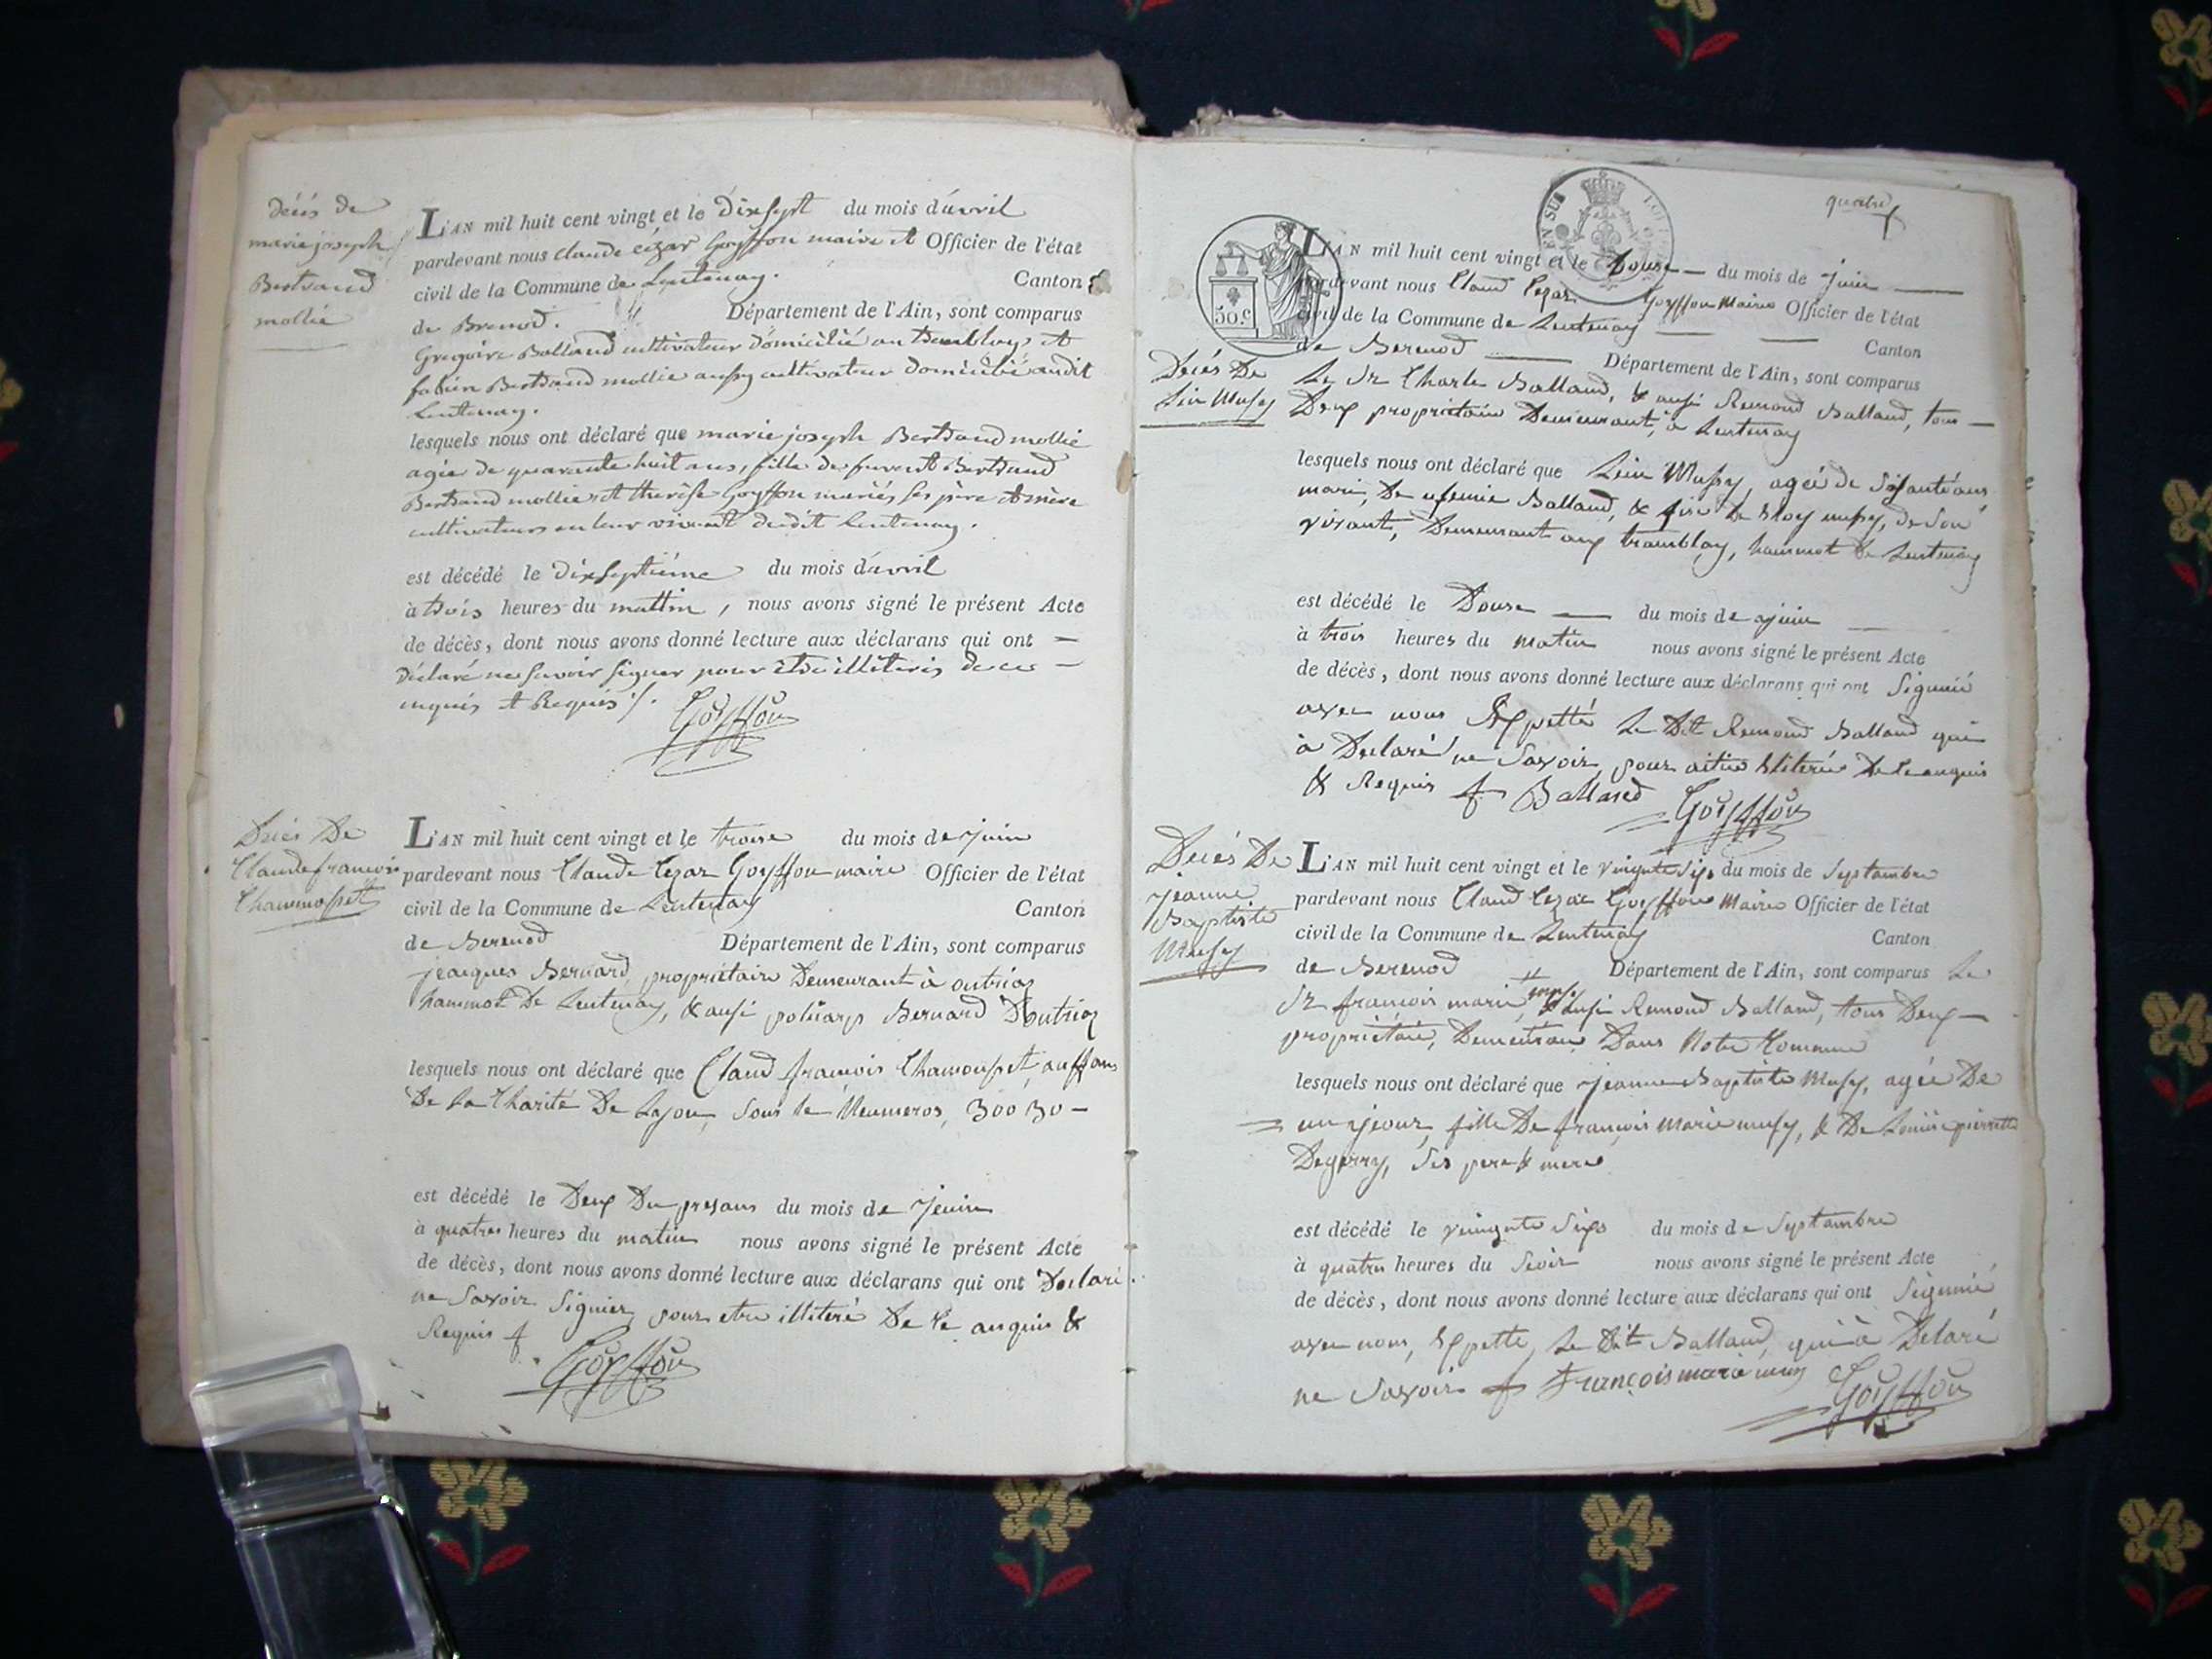 décés de
marie joseph
Bertrand
mollie
L'AN mil huit cent vingt et le dixsept du mois d'avril
pardevant nous claude cézar Goyffon maire et Officier de l'état
civil de la Commune de Lentenay. Canton
de Brenod. Département de l'Ain, sont comparus
Gregoire Balland cultivateur domicilié au tremblay, et
fabien Bertrand mollie aussy cultivateur domicilié audit
Lentenay.
lesquels nous ont déclaré que marie joseph Bertrand mollie
agée de quarante huit ans, fille de furent Bertrand
Bertrand mollie et therèse Goyffon mariés ses père et mère
cultivateurs en leur vivant dudit Lentenay.
est décédé le dixseptième du mois d'avril
à trois heures du mattin, nous avons signé le présent Acte
de décès, dont nous avons donné lecture aux déclarans qui ont —
déclaré ne savoir signer pour être illiteris de ce —
enquis et Requis /.
Goyffon
Decés De
Claude francois
Chammosset
L'AN mil huit cent vingt et le troise du mois de juin
pardevant nous Claude Cezar Goyffon maire Officier de l'état
civil de la Commune de Lentenay Canton
de Berenod Département de l'Ain, sont comparus
jeacques Bernard, proprietaire Demeurant à outriaz
hammot De Lentenay, & ausi policarp Bernard D'outriaz
lesquels nous ont déclaré que Claud francois Chamousset, anffans
De La Charité De Layon, Sous le Neumeros, 300 30 —
est décédé le Deux Du presans du mois de jeuin
à quatres heures du matin nous avons signé le présent Acte
de décès, dont nous avons donné lecture aux déclarans qui ont Declaré
ne Savoir Signier pour etre illiteré De Ce anquis &
Requis
Goyffon
quatre
50.c
L'AN mil huit cent vingt et le Douse — du mois de juin —
pardevant nous Claud Cezar Goyffon Maire Officier de l'état
civil de la Commune de Lentenay — — Canton
de Berenod — Département de l'Ain, sont comparus
Decés De
Lin Mussy
Le Sr Charle Balland, & ausi Remond Balland, tous —
Deux proprietaire Demeurant, à Lentenay
lesquels nous ont déclaré que Lin Mussy, agée de Sisante ans
mari, De ufemie Balland, & fise De Eloy mussy, de Son
vivant, Demeurant aux tramblay, hammot De Lentenay
est décédé le Douse — du mois de juin
à trois heures du matin nous avons signé le présent Acte
de décès, dont nous avons donné lecture aux déclarans qui ont Signié
avec nous Expetté Le Dit Remond Balland qui
à Declaré ne Savoir, pour aitre Eliteré De Ce anquis
& Requis Balland Goyffon
Decés De
jeanne
Baptiste
Mussy
L'AN mil huit cent vingt et le veingnte Sixs du mois de Septambre
pardevant nous Claud Cezar Goyffon Maire Officier de l'état
civil de la Commune de Lentenay Canton
de Berenod Département de l'Ain, sont comparus Le
Sr francois marie mussy & ausi Remond Balland, tous Deux —
proprietaire, Demeurant Dans Notre Commune
lesquels nous ont déclaré que jeanne Baptiste Mussy, agée De
un jeour, fille De francois Marie mussy, & De Louise pierrette
Degerry, Ses pere & mere
est décédé le veingnte Sixs du mois de Septambre
à quatres heures du Seoir nous avons signé le présent Acte
de décès, dont nous avons donné lecture aux déclarans qui ont Signié
avec nous, Expetté, Le Dit Balland, qui à Delaré
ne Savoir françois marie mussy Goyffon